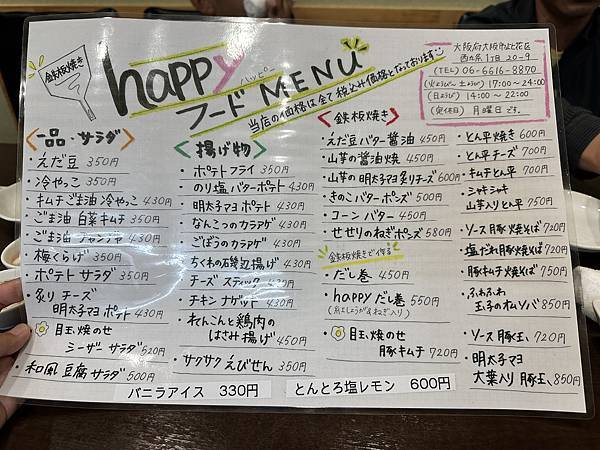 鉄板焼き
happy
ハッピー
フードMENU
当店の価格は全て税込み価格となっております
大阪府大阪市此花区
西九条1丁目20-9
(TEL) 06-6616-8870
(火ようび〜土ようび) 17:00〜24:00
(日ようび) 14:00〜22:00
(定休日) 月曜日です。
一品・サラダ
・えだ豆 350円
・冷やっこ 350円
・キムチごま油冷やっこ 430円
・ごま油白菜キムチ 350円
・ごま油チャンヂャ 430円
・梅くらげ 350円
・ポテトサラダ 350円
・炙りチーズ
明太子マヨポテト 430円
・目玉焼のせ
シーザーサラダ 520円
・和風豆腐サラダ 500円
揚げ物
・ポテトフライ 350円
・のり塩バターポテト 430円
・明太子マヨポテト 430円
・なんこつのカラアゲ 430円
・ごぼうのカラアゲ 430円
・ちくわの石磯辺揚げ 430円
・チーズスティック 430円
・チキンナゲット 430円
・れんこんと鶏肉の
はさみ揚げ 450円
・サクサクえびせん 350円
鉄板焼き
・えだ豆バター醤油 450円
・山芋の醤油焼 450円
・山芋の明太子炙りチーズ 600円
・きのこバターポンズ 500円
・コーンバター 450円
・せせりのねぎポンズ 580円
鉄板焼きで作る
・だし巻 450円
・happyだし巻 550円
(紅しょうが&ねぎ入り)
・目玉焼のせ
豚キムチ 720円
・とん平焼き 600円
・とん平チーズ 700円
・キムチとん平 700円
・シャキシャキ
山芋入りとん平 750円
・ソース豚焼そば 720円
・塩だれ豚焼そば 720円
・豚キムチ焼そば 750円
・ふわふわ
玉子のオムソバ 850円
・ソース豚玉 720円
・明太子マヨ
大葉入り豚玉 850円
バニラアイス 330円
とんとろ塩レモン 600円